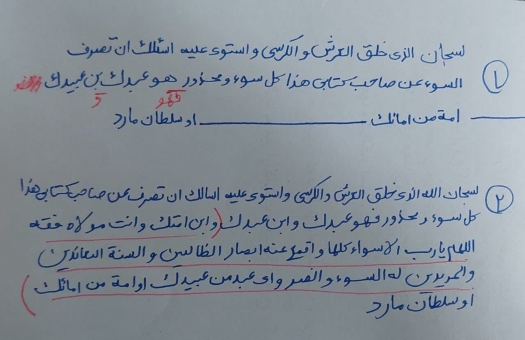 سبحان الذى خلق العرش والكرسى واستوى عليه اسئلك ان تصرف
١ السوء عن صاحب كتابى هذا كل سوء ومحذور هو عبدك بن عبيدك
فهو و
امة من امائك او سلطان مارد
٢ سبحان الله الذى خلق العرش والكرسى واستوى عليه اسالك ان تصرف عن صاحب كتابى هذا
كل سوء ومحذور فهو عبدك وابن عبدك (وابن امتك وانت مولاه حقه
اللهم يارب الاسواء كلها واقمع عنه ابصار الظالمين والسنة المعاندين
والمريدين له السوء والضر واى عبد من عبيدك او امة من امائك)
او سلطان مارد